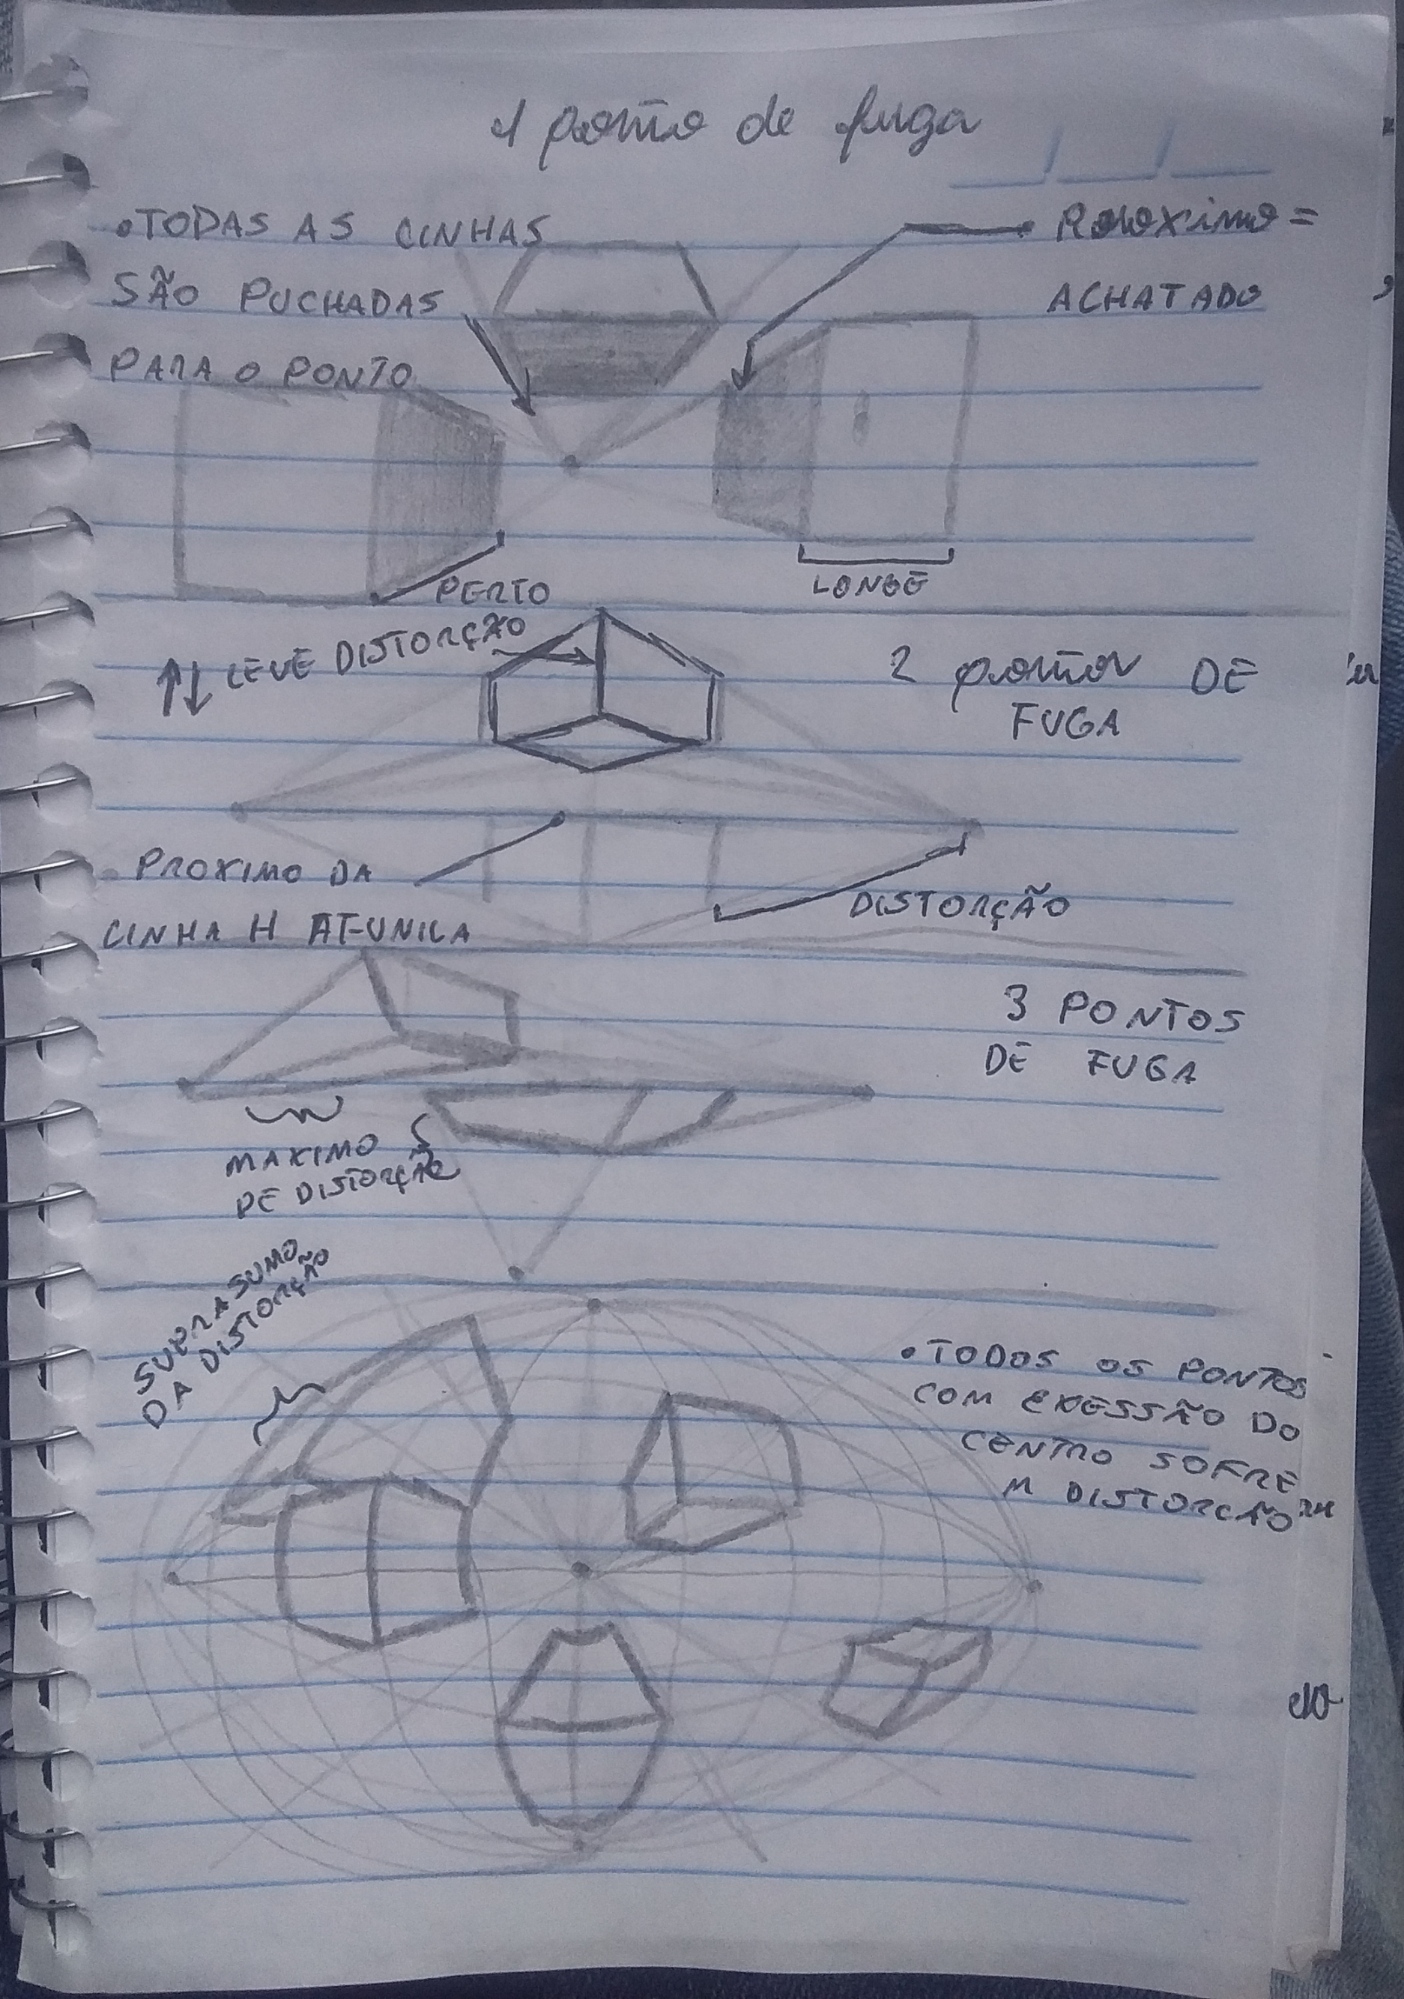 1 ponto de fuga
•TODAS AS LINHAS
SÃO PUCHADAS
PARA O PONTO
• Próximo =
ACHATADO
PERTO
LONGE
LEVE DISTORÇÃO
2 pontos DE
FUGA
• PROXIMO DA
LINHA H AFUNILA
DISTORÇÃO
3 PONTOS
DE FUGA
MAXIMO
DE DISTORÇÃO
SUPRASUMO
DA DISTORÇÃO
•TODOS OS PONTOS
COM EXESSÃO DO
CENTRO SOFRE
M DISTORCÃO